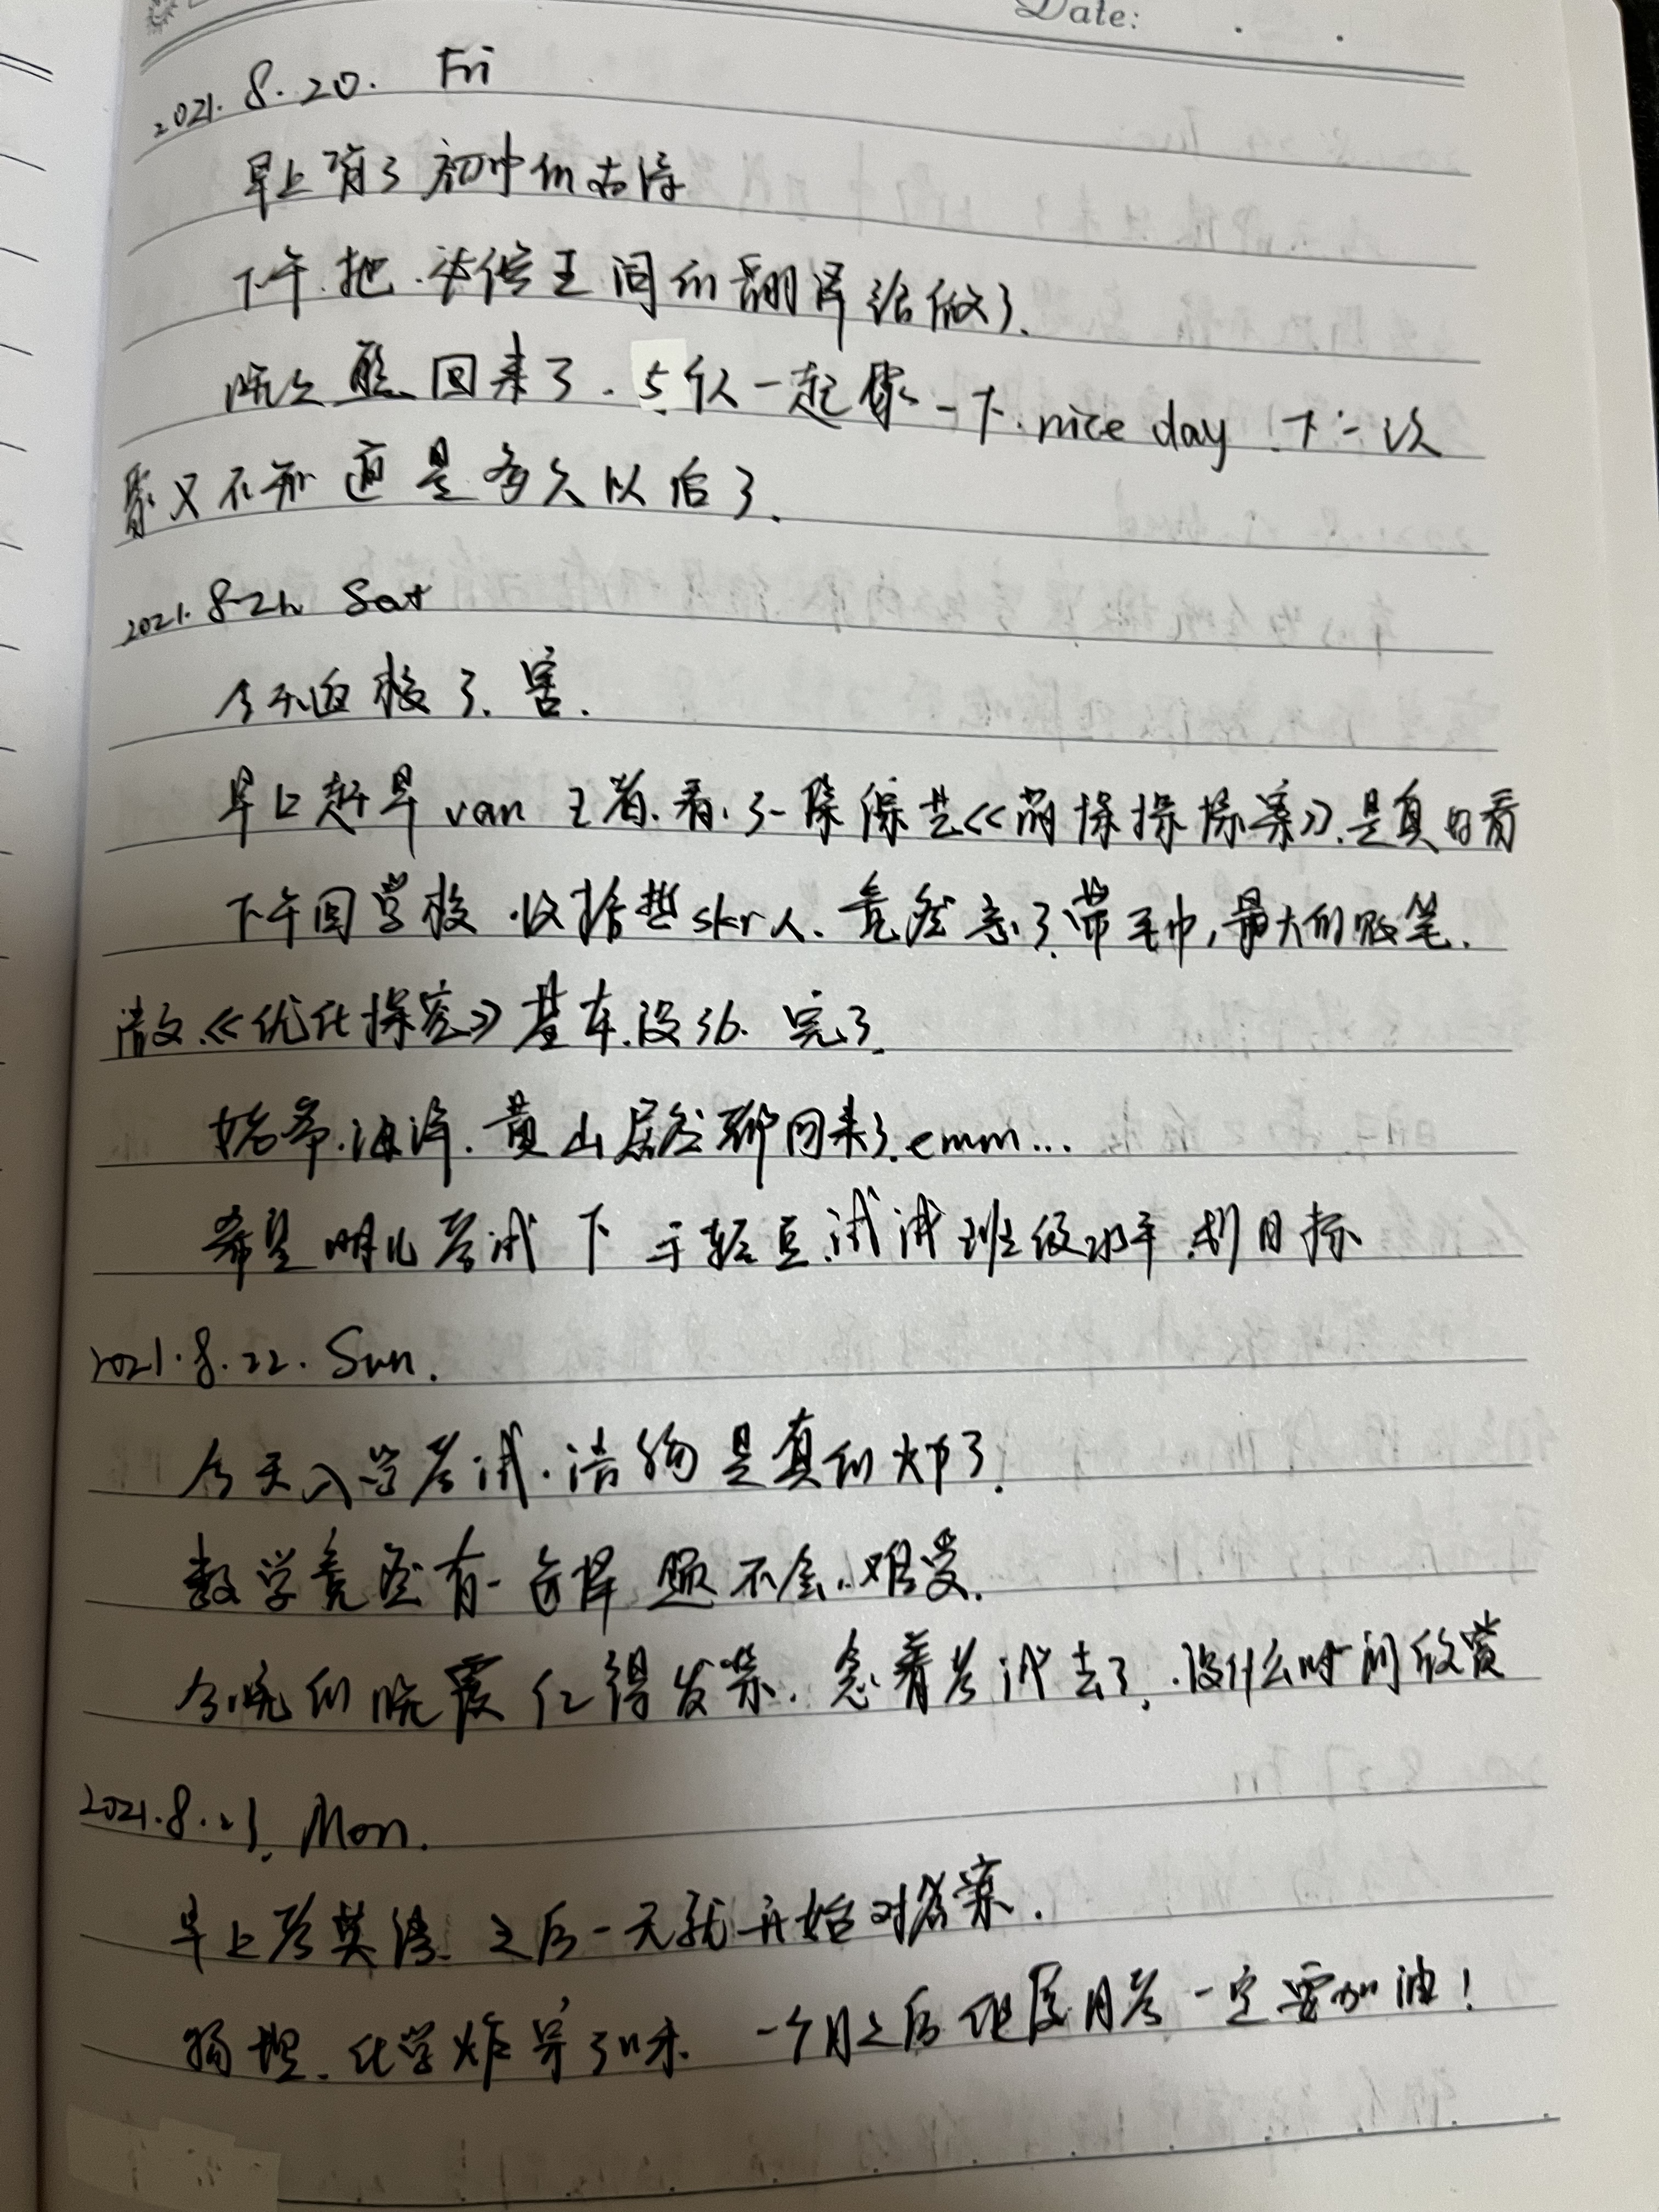 Date:
2021.8.20. Fri
早上背了初中的古诗
下午把 的翻译给做了.
晚上熊回来了.5个人一起聚一下.nice day.下一次
聚又不知道是多久以后了.
2021.8.21. Sat
今天返校了.害.
早上趁早van王者.看了一集综艺《萌探探探案》.是真的看
下午回学校.收拾 skr人.竟然忘了带毛巾,最大的败笔.
语文.《优化探究》基本没 完了.
海洋.黄山居然都回来了.emm...
希望明儿考试下手轻点.试试班级水平.划目标
2021.8.22. Sun.
今天入学考试. 物是真的炸了.
数学竟然有一选择题不会.难受.
今晚的晚霞红得发紫.急着考试去了.没什么时间欣赏
2021.8.23. Mon.
早上考英语.之后一天就开始对答案.
物理.化学炸 了 一个月之后 月考一定要加油!